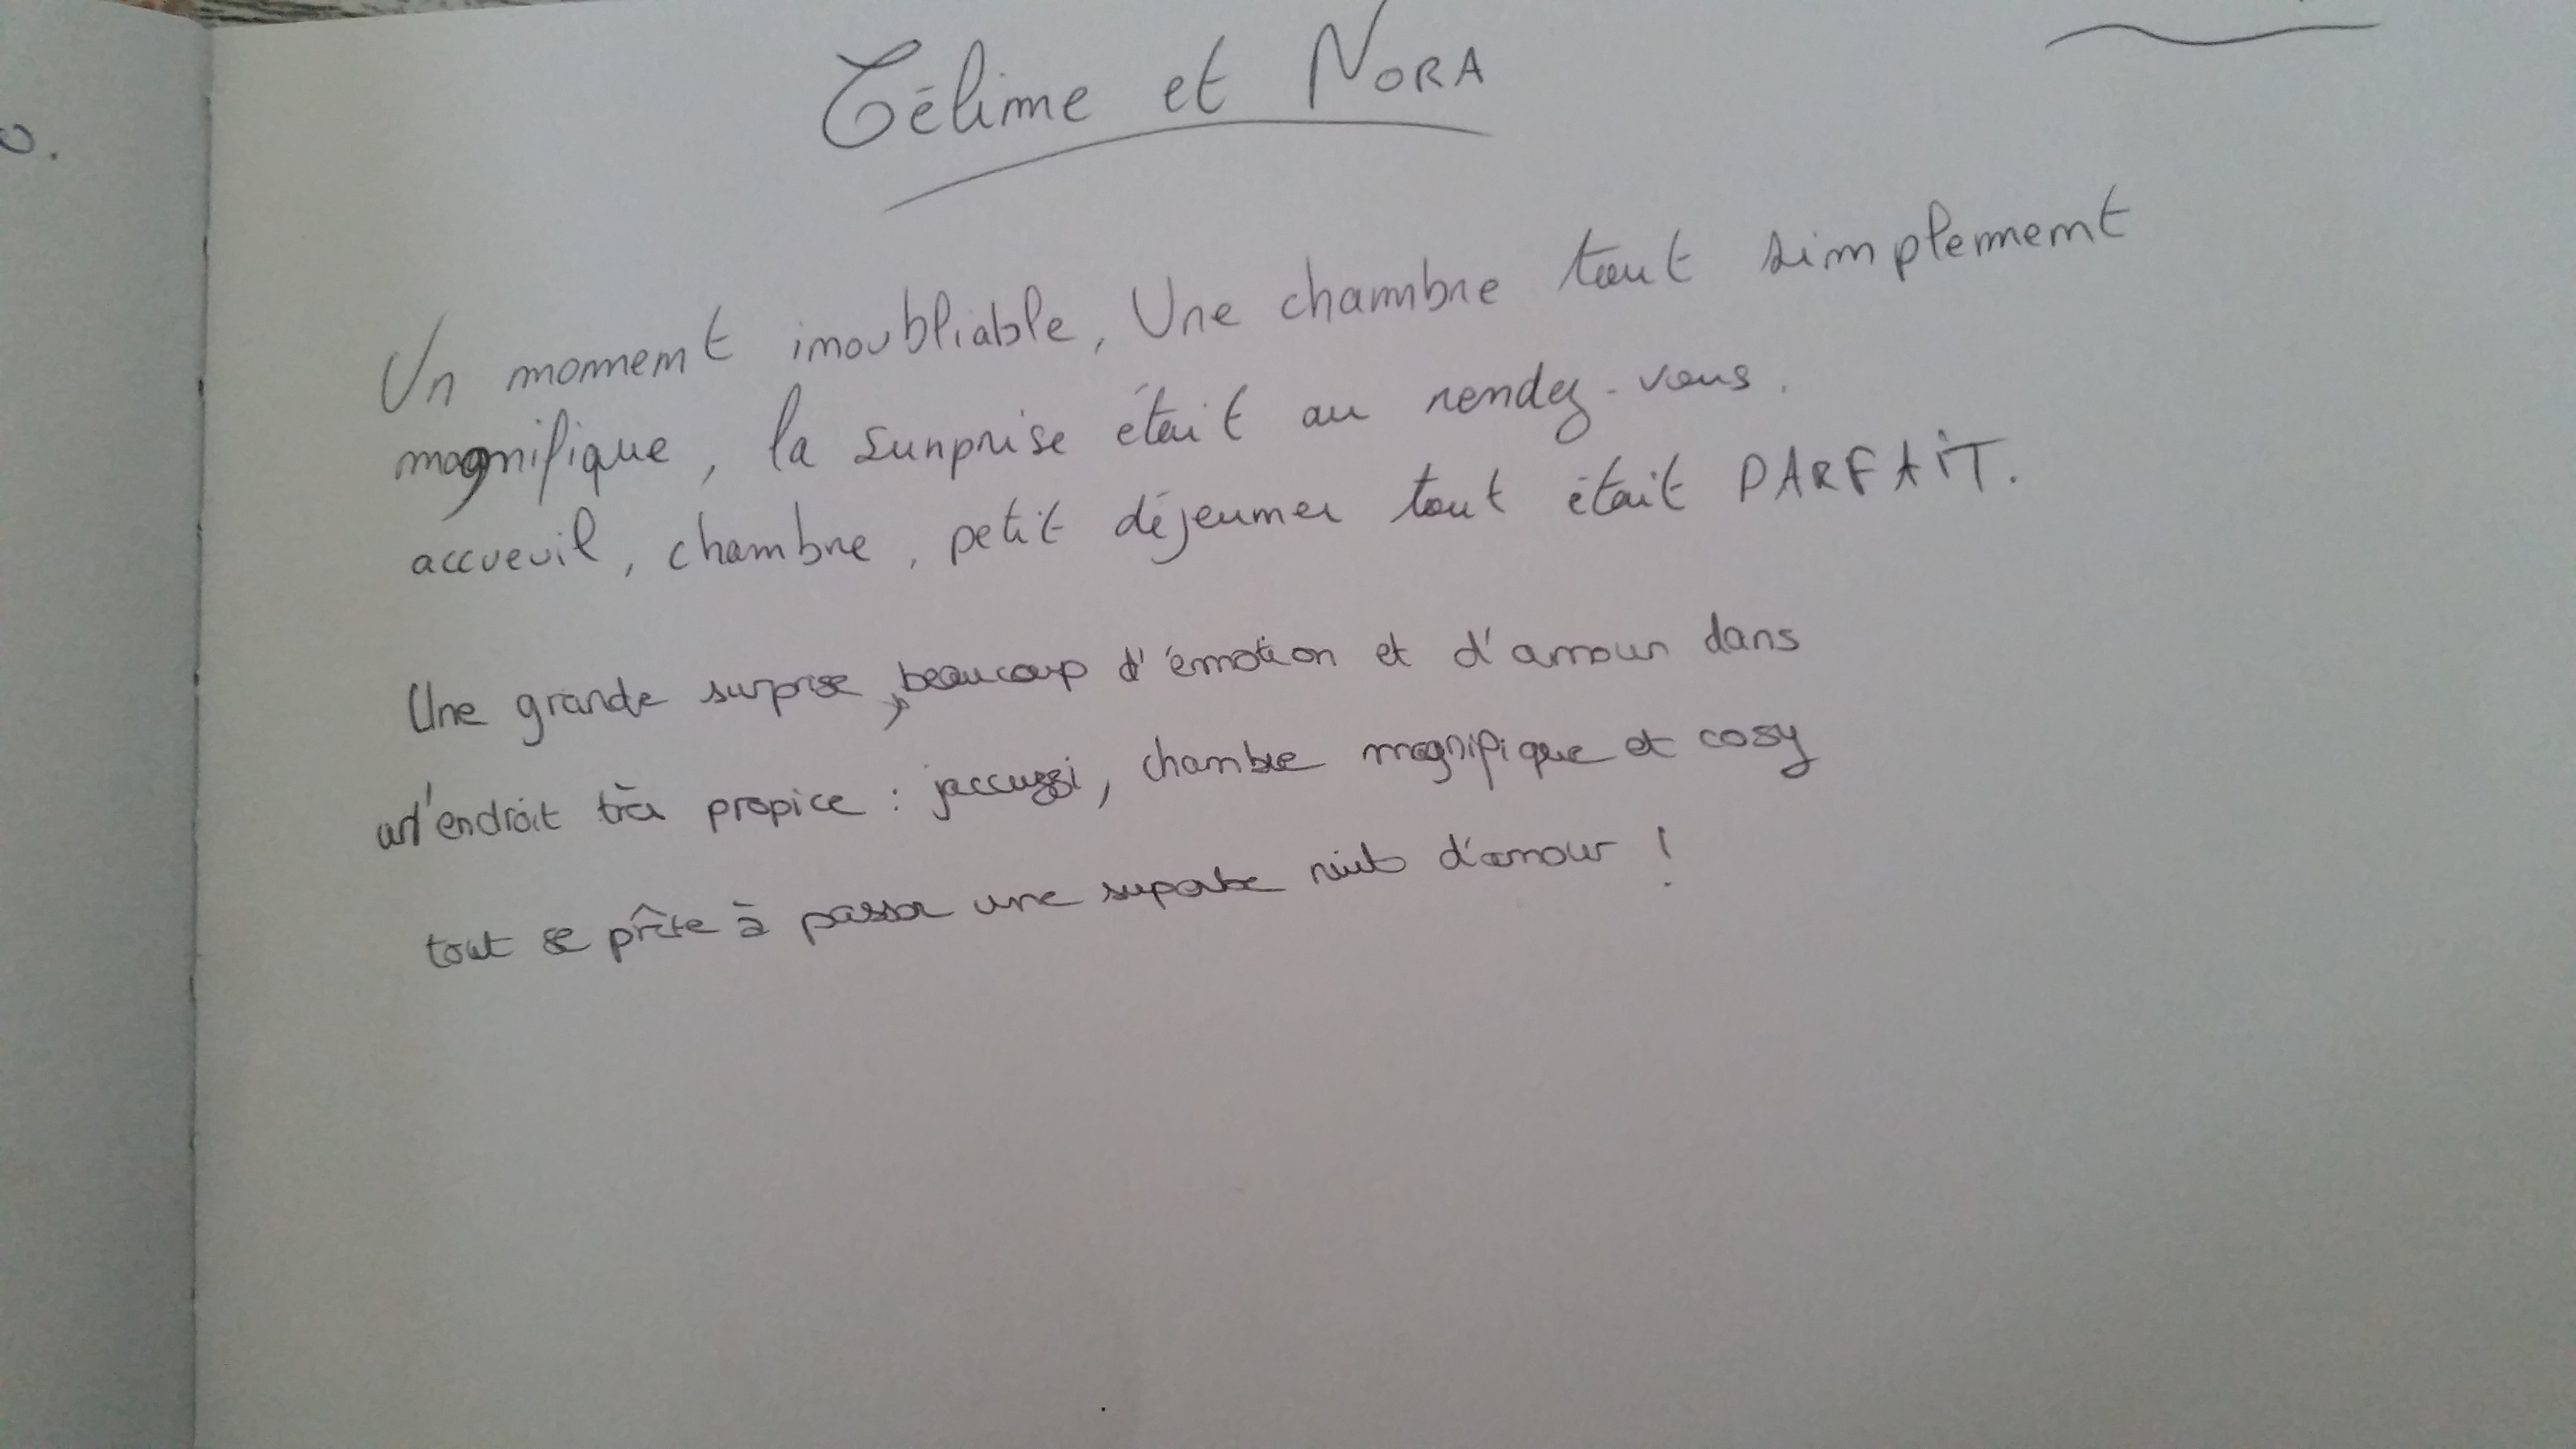 Céline et NORA
Un moment inoubliable, Une chambre tout simplement
magnifique, la surprise était au rendez-vous.
accueuil, chambre, petit déjeuner tout était PARFAIT.
Une grande surprise, beaucoup d'émotion et d'amour dans
un endroit très propice : jaccuzzi, chambre magnifique et cosy
tout se prête à passer une superbe nuit d'amour !